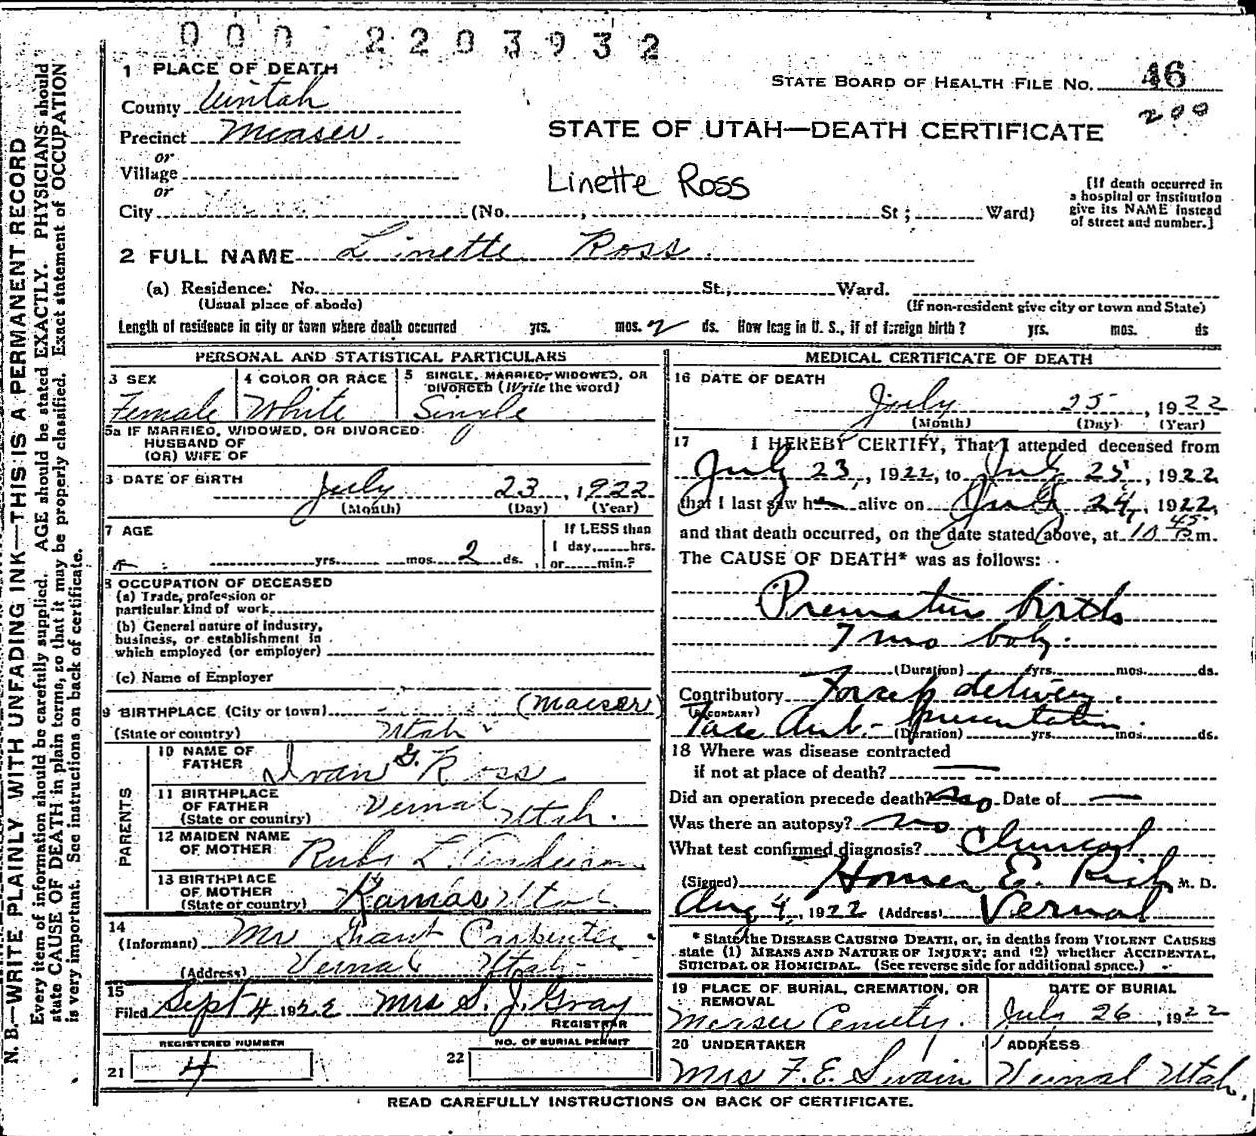 000 2203932
1 PLACE OF DEATH
STATE BOARD OF HEALTH FILE NO. 46
County Uintah
200
Precinct Measer.
STATE OF UTAH—DEATH CERTIFICATE
or
Village
or
Linette Ross
[If death occurred in a hospital or institution give its NAME instead of street and number.]
City (No. , St ; Ward)
2 FULL NAME Linette Ross.
(a) Residence: No. St., Ward.
(Usual place of abode) (If non-resident give city or town and State)
Length of residence in city or town where death occurred yrs. mos. 2 ds. How long in U. S., if of foreign birth? yrs. mos. ds
PERSONAL AND STATISTICAL PARTICULARS
3 SEX Female
4 COLOR OR RACE White
5 SINGLE, MARRIED, WIDOWED, OR DIVORCED (Write the word) Single
5a IF MARRIED, WIDOWED, OR DIVORCED
HUSBAND OF
(OR) WIFE OF
6 DATE OF BIRTH July 23, 1922
(Month) (Day) (Year)
7 AGE yrs. mos. 2 ds.
If LESS than
1 day, hrs.
or min.?
8 OCCUPATION OF DECEASED
(a) Trade, profession or
particular kind of work
(b) General nature of industry,
business, or establishment in
which employed (or employer)
(c) Name of Employer
9 BIRTHPLACE (City or town) (Maeser)
(State or country) Utah
PARENTS
10 NAME OF FATHER Ivan G. Ross
11 BIRTHPLACE OF FATHER (State or country) Vernal Utah.
12 MAIDEN NAME OF MOTHER Ruby L. Anderson
13 BIRTHPLACE OF MOTHER (State or country) Kamas Utah.
14 (Informant) Mr Grant Carpenter
(Address) Vernal Utah
15 Filed Sept 4 1922 Mrs S. J. Gray
REGISTRAR
REGISTERED NUMBER
21 4
NO. OF BURIAL PERMIT
22
MEDICAL CERTIFICATE OF DEATH
16 DATE OF DEATH
July 25, 1922
(Month) (Day) (Year)
17 I HEREBY CERTIFY, That I attended deceased from
July 23, 1922, to July 25, 1922
that I last saw h alive on July 24, 1922,
and that death occurred, on the date stated above, at 10 45 m.
The CAUSE OF DEATH* was as follows:
Premature birth
7 mo baby.
(Duration) yrs. mos. ds.
Contributory Forcep delivery.
(SECONDARY) Face Presentation.
(Duration) yrs. mos. ds.
18 Where was disease contracted
if not at place of death? —
Did an operation precede death? No Date of —
Was there an autopsy? no
What test confirmed diagnosis? Clinical
(Signed) Homer E. Rich M. D.
Aug 4, 1922 (Address) Vernal
* State the DISEASE CAUSING DEATH, or, in deaths from VIOLENT CAUSES
state (1) MEANS AND NATURE OF INJURY; and (2) whether ACCIDENTAL,
SUICIDAL OR HOMICIDAL. (See reverse side for additional space.)
19 PLACE OF BURIAL, CREMATION, OR REMOVAL
Measer Cemetery.
DATE OF BURIAL
July 26, 1922
20 UNDERTAKER
Mrs F. E. Swain
ADDRESS
Vernal Utah.
READ CAREFULLY INSTRUCTIONS ON BACK OF CERTIFICATE.
N. B.—WRITE PLAINLY WITH UNFADING INK—THIS IS A PERMANENT RECORD
Every item of information should be carefully supplied. AGE should be stated EXACTLY. PHYSICIANS should
state CAUSE OF DEATH in plain terms, so that it may be properly classified. Exact statement of OCCUPATION
is very important. See instructions on back of certificate.